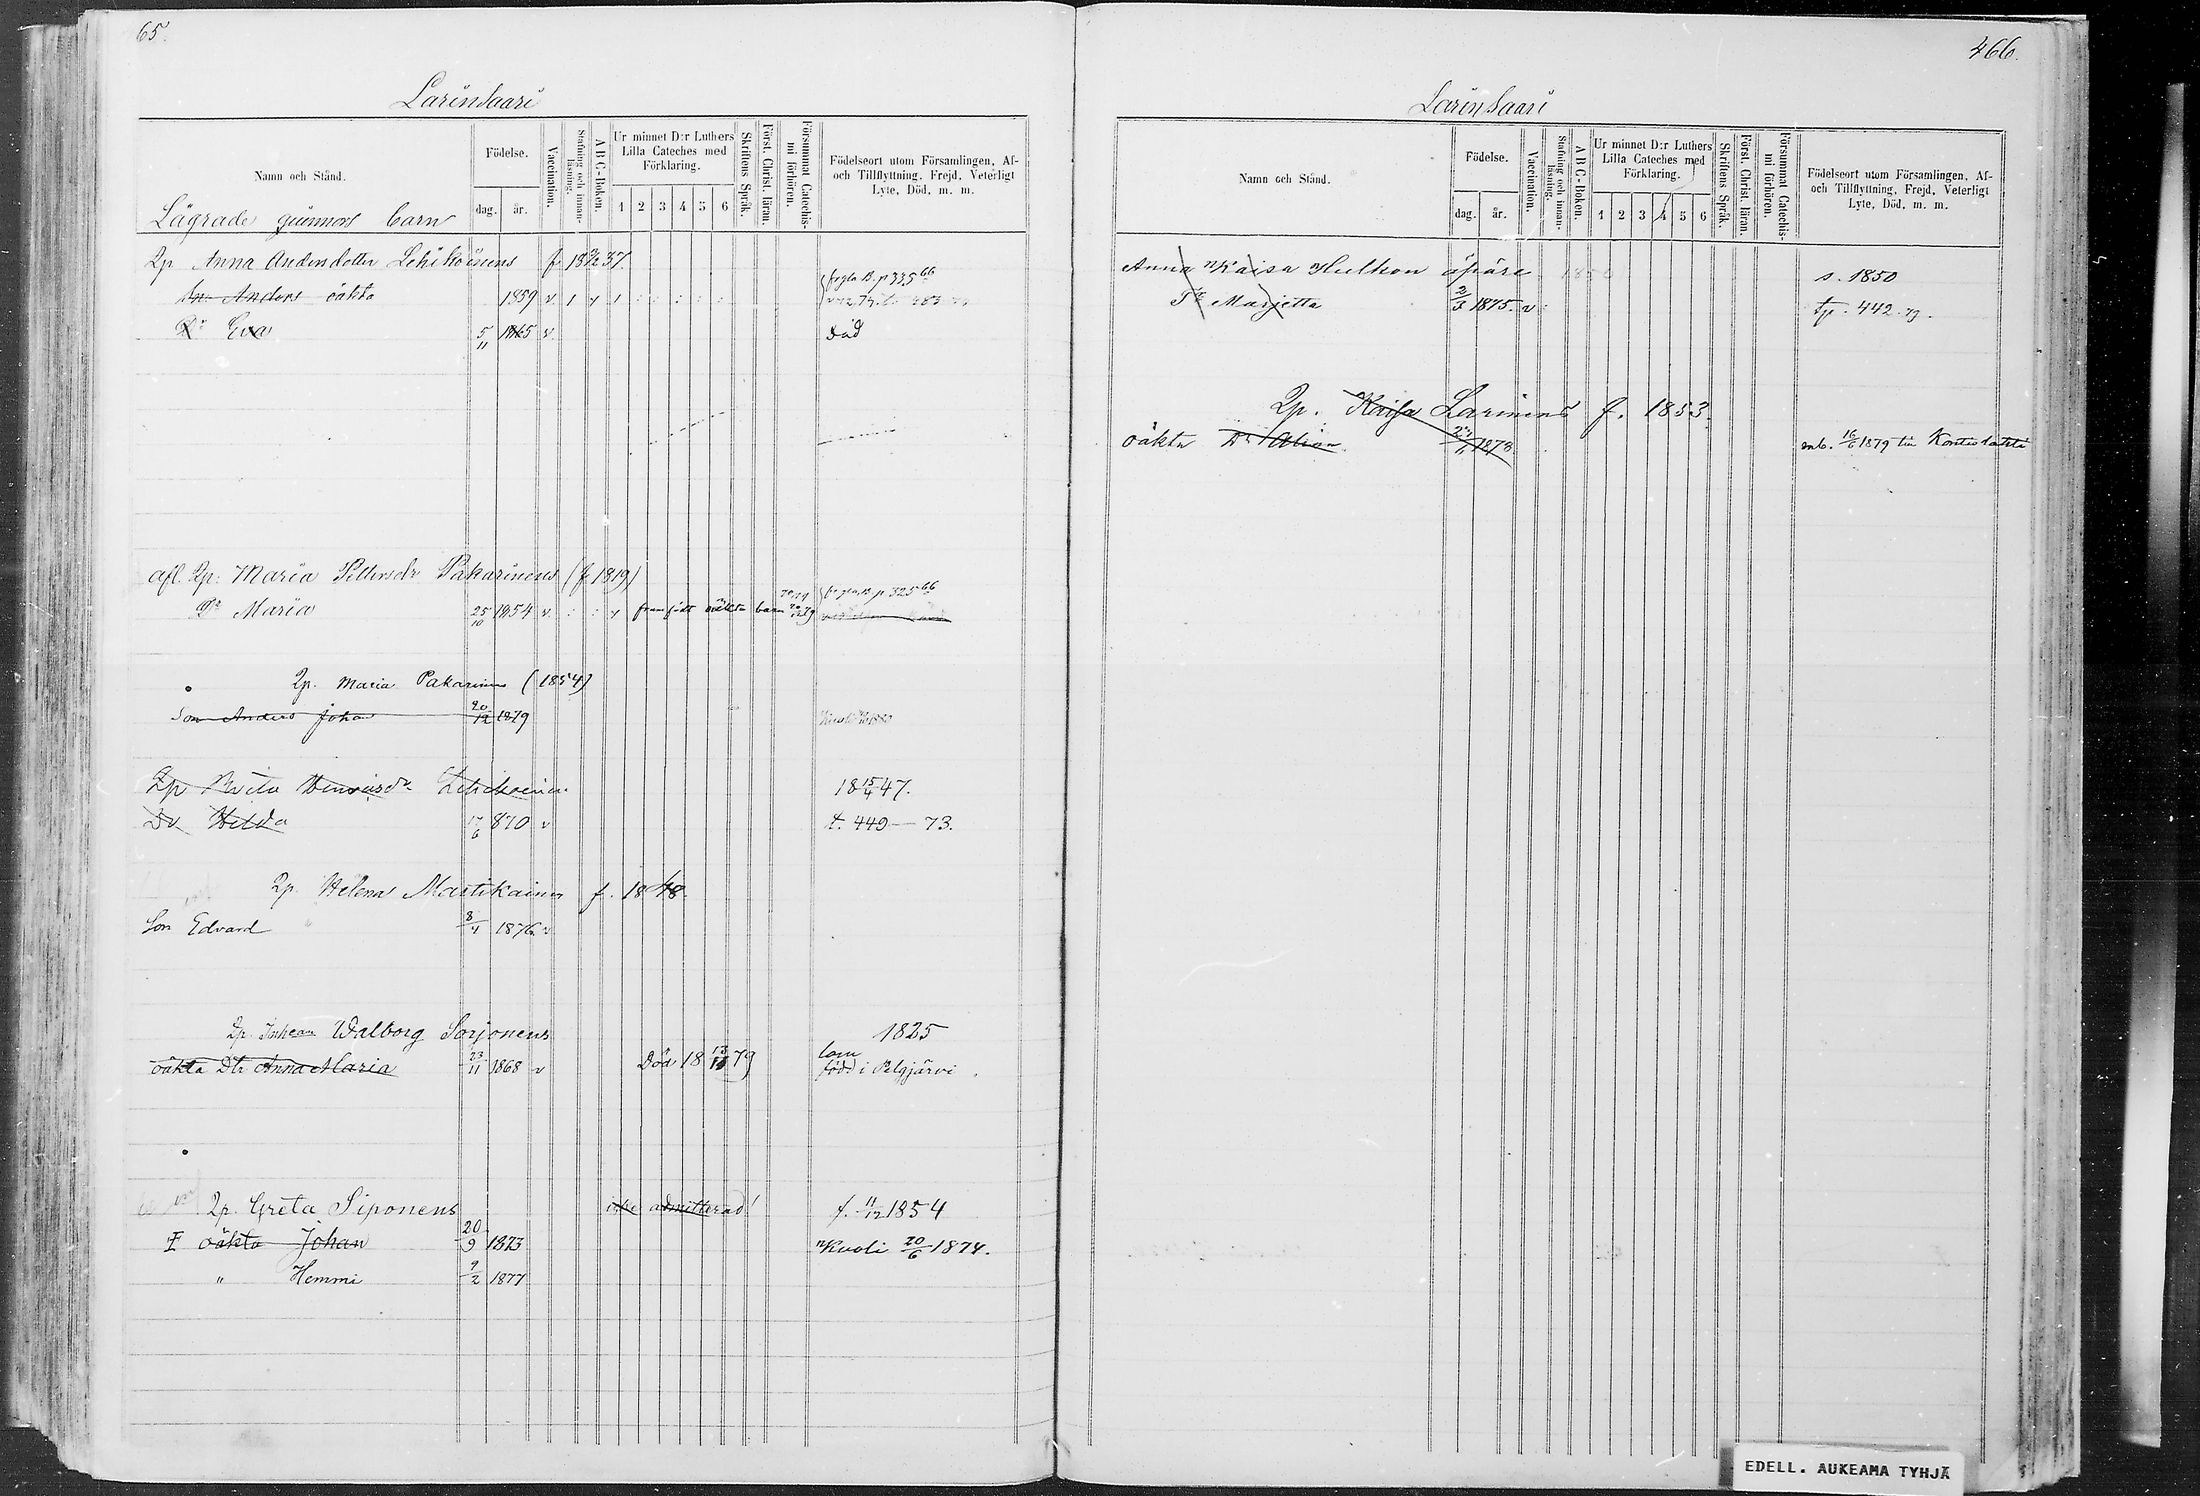 65.
Larinsaari
Namn och Stånd.
Födelse.
dag.
år.
Vaccination.
Stafning och innan-
läsning.
A B C-Boken.
Ur minnet D:r Luthers
Lilla Cateches med
Förklaring.
1 2 3 4 5 6
Skriftens Språk.
Först. Christ. läran.
Försummat Catechis-
mi förhören.
Födelseort utom Församlingen, Af-
och Tillflyttning, Frejd, Veterligt
Lyte, Död, m. m.
Lägrade barn
Qp Anna Andersdotter Lehikoinens f.
Anders oäkta 1859 v
Eva 5/11 1865 v Död
afl. Qp: Maria Pakarinens (f 1819)
Dr Maria 25/10 1854 v. framfödt oäkta barn
Qp. Maria Pakarinens (1854)
Son Anders Johan 20/12 1879
Qp Lehikoinen 18 15/4 47.
Dr Helda 17/6 870 v t. 449 — 73.
Qp. Helena Martikainen f. 1848.
Son Edvard 8/4 1876 v
Qp. Walborg Sorjonens 1825
oäkta Dtr Anna Maria 23/11 1868 v Död 18 79
född i Pelgjärvi
Qp. Greta Siponens icke admitterad! f. 11/12 1854
oäkta Johan 20/9 1873 Kuoli 20/6 1874.
" Hemmi 9/2 1877
466.
Larinsaari
Namn och Stånd.
Födelse.
dag.
år.
Vaccination.
Stafning och innan-
läsning.
A B C-Boken.
Ur minnet D:r Luthers
Lilla Cateches med
Förklaring.
1 2 3 4 5 6
Skriftens Språk.
Först. Christ. läran.
Försummat Catechis-
mi förhören.
Födelseort utom Församlingen, Af-
och Tillflyttning, Frejd, Veterligt
Lyte, Död, m. m.
Anna Kaisa Hulkon äpäre s. 1850
Marjetta 2/3 1875. v 442
Qp. Kaisa Larinens f. 1853.
oäkta 1873. 16/6 1879 Kontiolahti
EDELL. AUKEAMA TYHJÄ